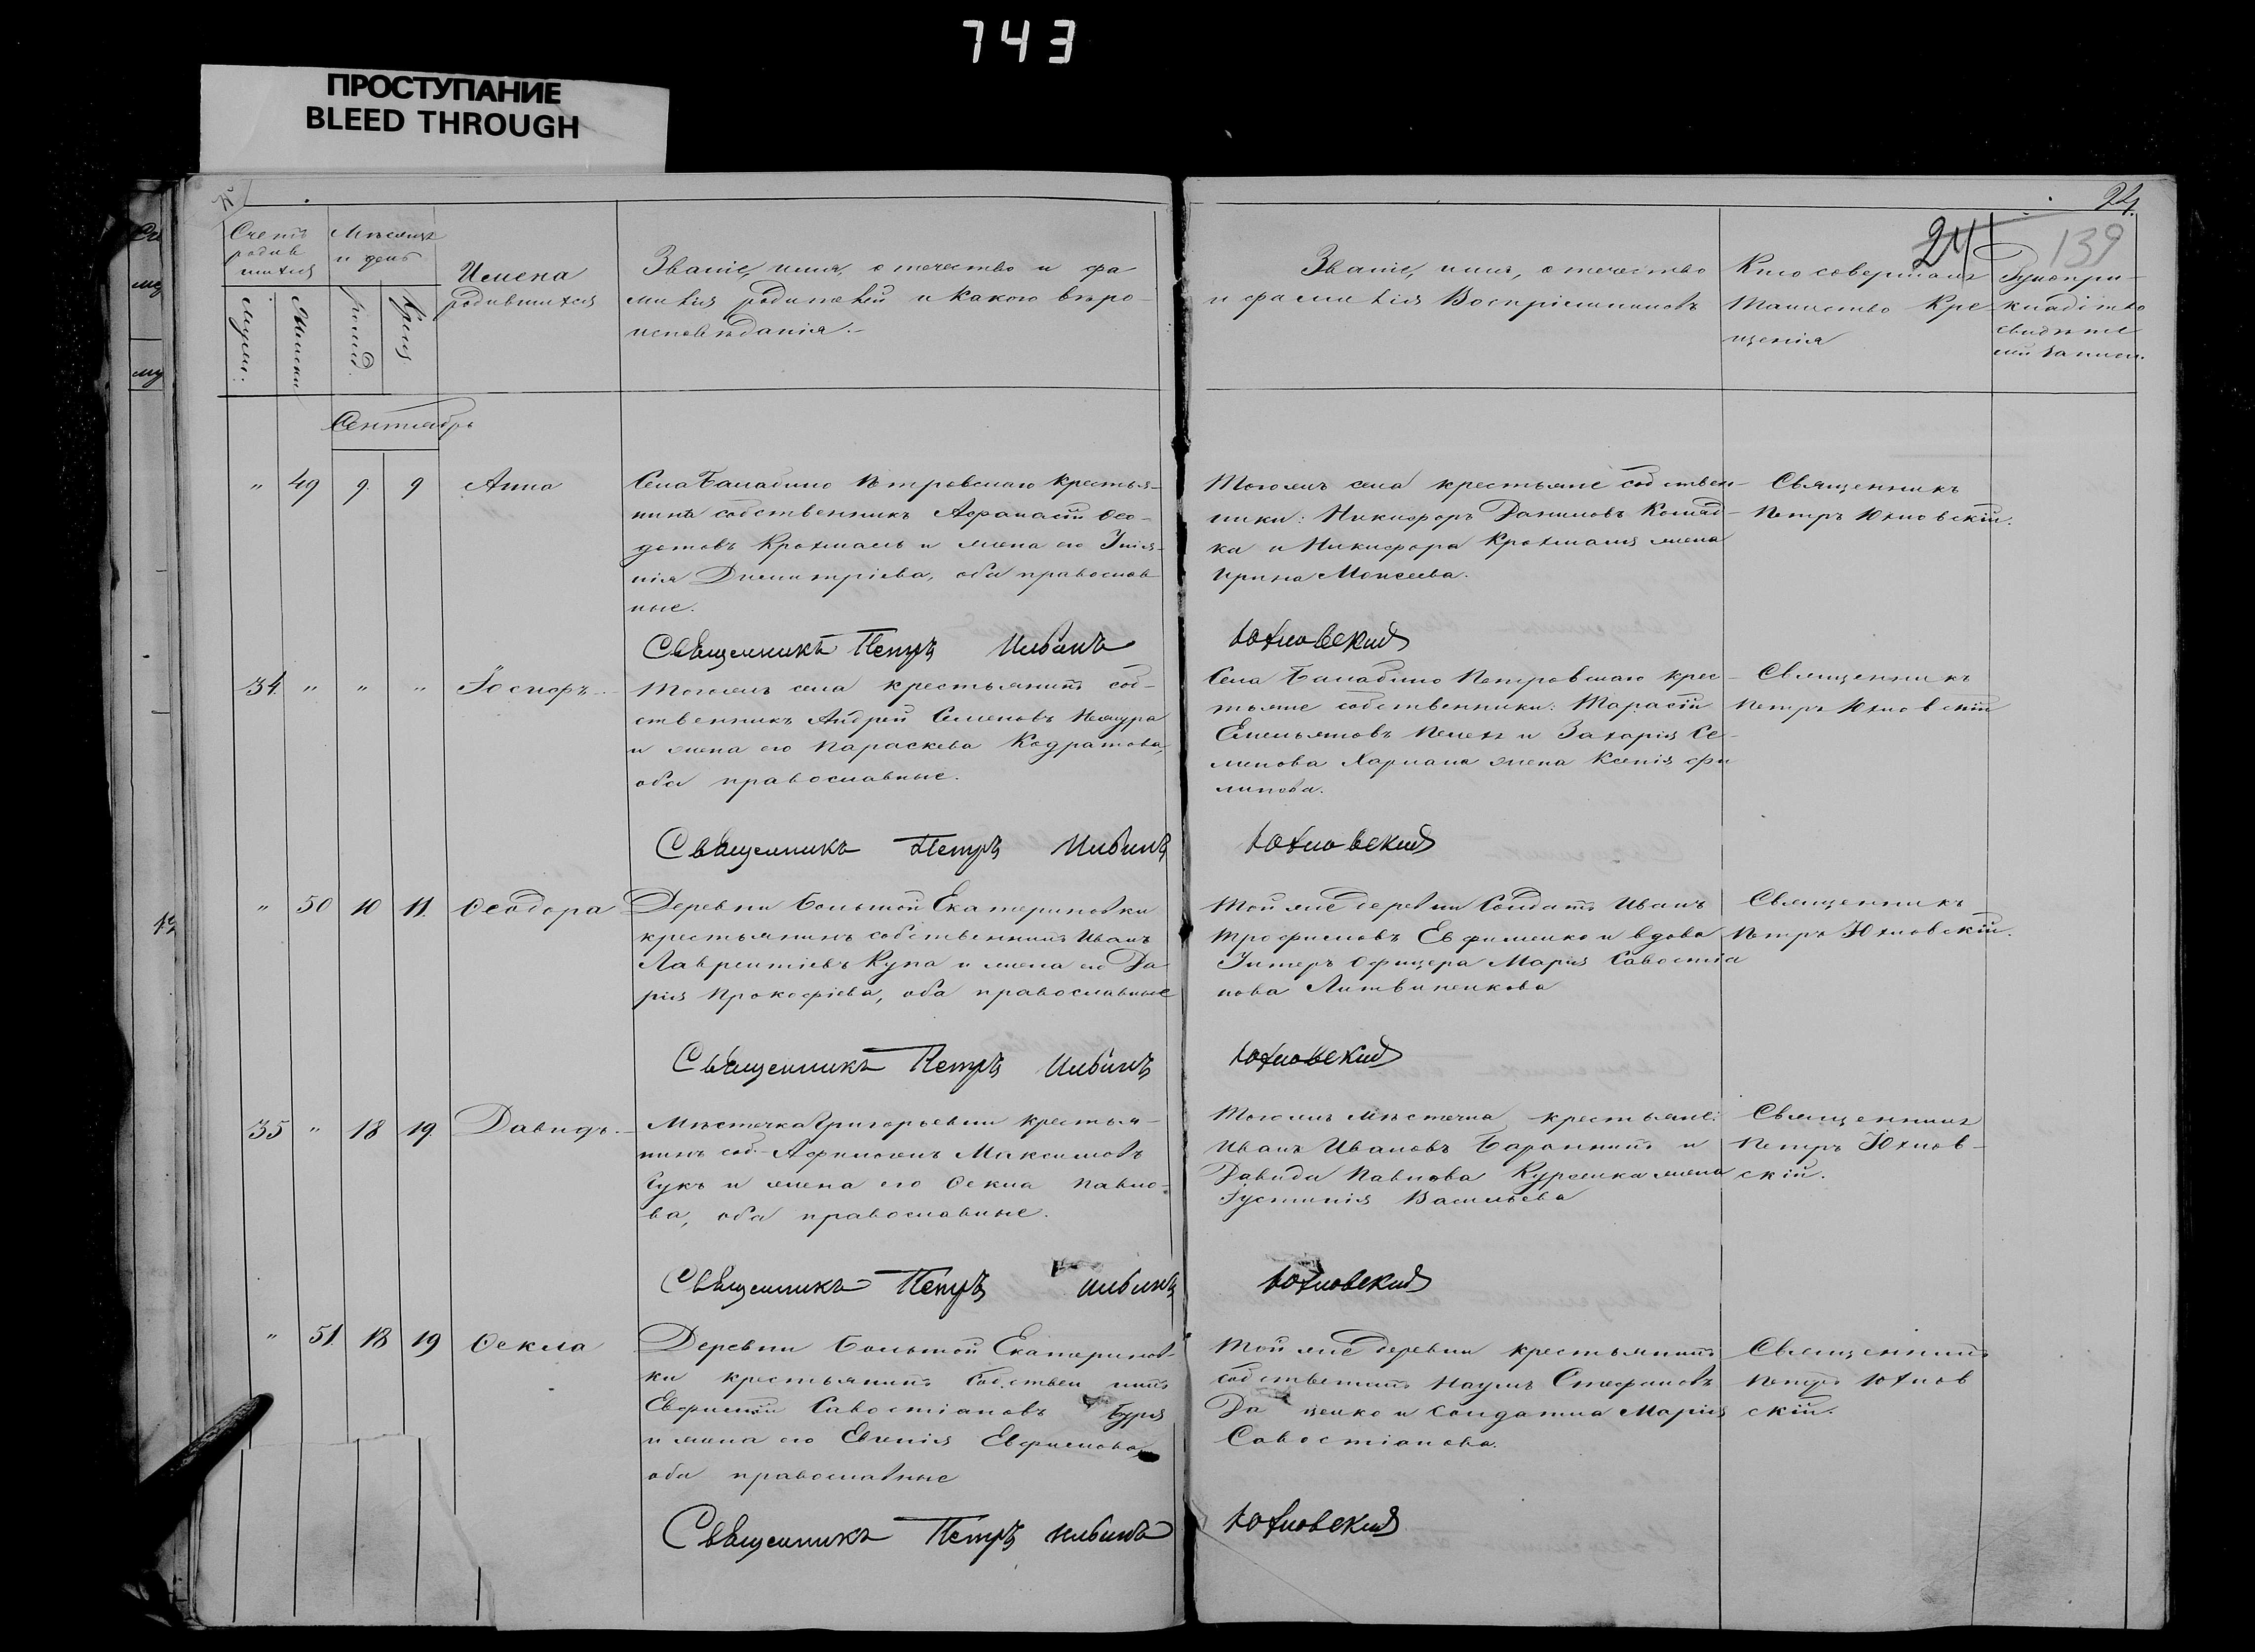 743
ПРОСТУПАНИЕ
BLEED THROUGH
24.
24
139
Счетъ родив шихся
Мѣсяцъ и день
Имена родившихся
Званіе, имя, отечество и фа
милія родителей и какого вѣро-
исповѣданія.-
Званіе, имя, отечество
и фамилія Воспріемниковъ
Кто совершалъ
Таинство Кре
щенія
Рукопри-
кладство
свидѣте
лей записи.
Мужск:
Женск:
рожд.
крещ.
Сентябрь
" 49 9 9 Анна
Села Балабино Петровскаго крестья-
нинъ собственникъ Афанасій Ѳео-
дотовъ Крохмаль и жена его
Димитріева, оба православ
ные.
Священникъ Петръ
Тогожъ села крестьяне собствен-
ники: Никифоръ Даниловъ
ка и Никифора Крохмаля жена
Ирина Моисеева.
Юхновскій
Священникъ
Петръ Юхновскій.
34. " " " Іосифъ
Тогожъ села крестьянинъ соб-
ственникъ Андрей Семеновъ
и жена его Параскева Кодратова,
оба православные.
Священникъ Петръ
Села Балабино Петровскаго крес-
тьяне собственники: Тарасій
Емельяновъ и Захарія Се-
менова жена Ксенія Фи
липова.
Юхновскій
Священникъ
Петръ Юхновскій
" 50 10 11. Ѳеодора
Деревни Большой Екатериновки
крестьянинъ собственникъ Иванъ
Лаврентіевъ Купа и жена его Да
рія Прокофіева, оба православные
Священникъ Петръ
Той же деревни Солдатъ Иванъ
Трофимовъ Ефименко и вдова
Унтеръ Офицера Марія Савостіа
нова Литвиненкова
Юхновскій
Священникъ
Петръ Юхновскій.
35 " 18 19. Давидъ.
Мѣстечка Григорьевки крестья-
нинъ соб. Максимовъ
и жена его Ѳекла Павло-
ва, оба православные.
Священникъ Петръ
Тогожъ мѣстечка крестьяне:
Иванъ Ивановъ Баранникъ и
Давида Павлова жена
Іустинія Васильева
Юхновскій
Священникъ
Петръ Юхнов-
скій.
" 51. 18 19 Ѳекла
Деревни Большой Екатеринов-
ки крестьянинъ Собственникъ
Савостіановъ Буря
и жена его Евгенія Евфимова,
оба православные
Священникъ Петръ
Той же деревни крестьянинъ
собственникъ Наумъ Стефановъ
Да ценко и солдатка Марія
Савостіанова.
Юхновскій
Священникъ
Петръ Юхнов
скій.